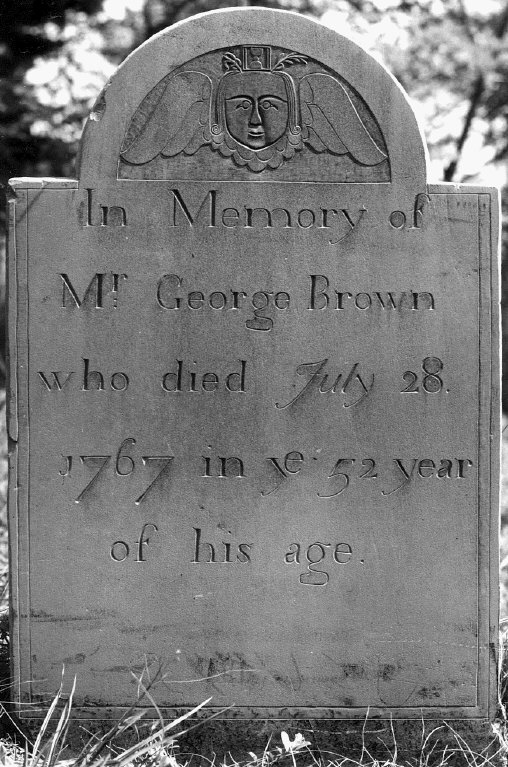 In Memory of
Mr George Brown
who died July 28.
1767 in ye 52 year
of his age.